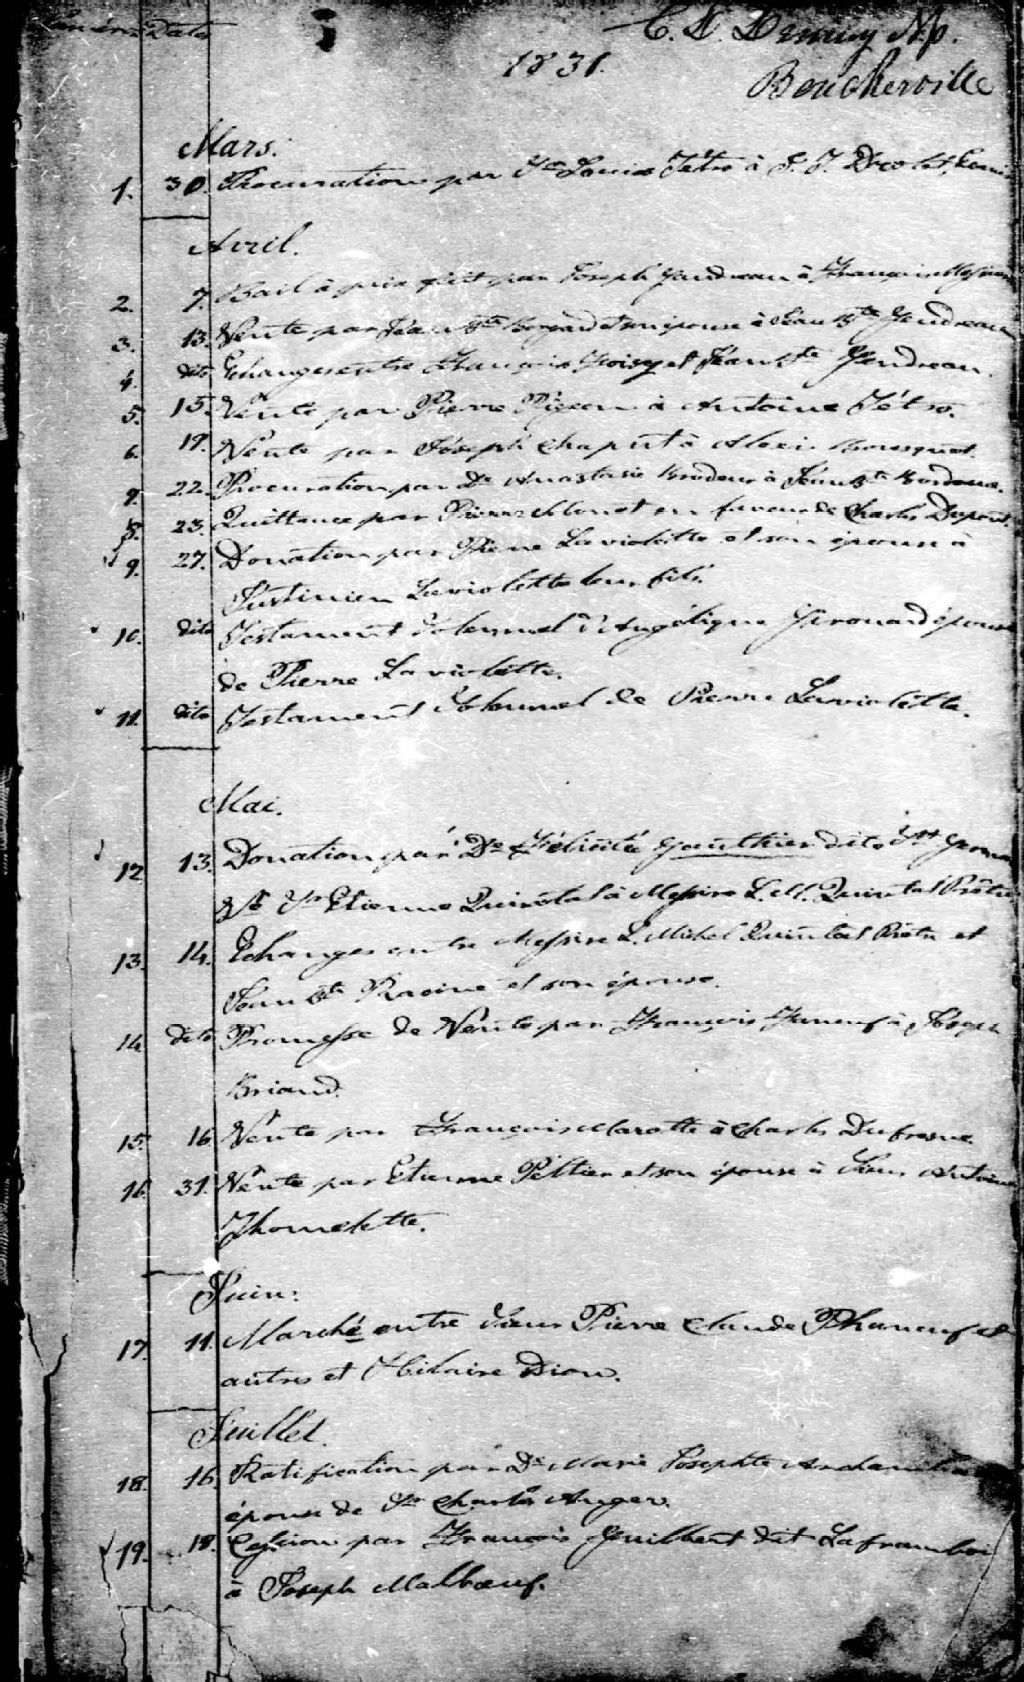 Date
1831.
Boucherville
Mars.
1. 30. Procuration par Sr Louis Tétro à
Avril.
2. 7. Bail à prix fait par Joseph Gaudreau à François
3. 13. Vente par Jean Bte et son épouse à Jean Bte Gendreau
4. dito Echange entre François et Jean Bte Gendreau.
5. 15. Vente par Pierre Pigeon à Antoine Tétro.
6. 19. Vente par Joseph Chaput à Alexis Bousquet.
7. 22. Procuration par De Anastasie Brodeur à Jean Bte
8. 23. Quittance par Pierre en faveur de Charles Dupont.
9. 27. Donation par Pierre Laviolette et son épouse à
Justinien Laviolette leur fils.
10. dito Testament solemnel d'Angélique Girouard épouse
de Pierre Laviolette.
11. dito Testament solemnel de Pierre Laviolette.
Mai.
12. 13. Donation par De Félicité Gauthier dite St Germain
Ve Sr Etienne Quintal à Messire L. M. Quintal Prêtre
13. 14. Echange entre Messire L. Michel Quintal Prêtre et
Jean Bte Racine et son épouse.
14. dito Promesse de Vente par François à Joseph
Briand.
15. 16. Vente par François Marotte à Charles Dufresne
16. 31. Vente par Etienne Peltier et son épouse à Sieur Antoine
Thomelette.
Juin:
17. 11. Marché entre Sieur Pierre Claude Phaneuf et
autres et Hilaire Dion.
Juillet.
18. 16. Ratification par De Marie Josephte
épouse de Sr Charles Auger.
19. 18. Cession par François Guilbert dit Laframboi
à Joseph Malboeuf.